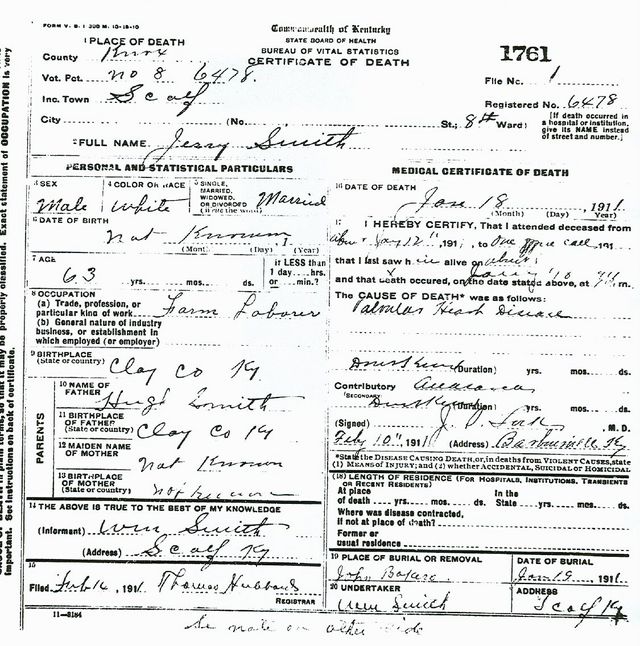 FORM V. S. 1 300 M. 10-18-10
Commonwealth of Kentucky
STATE BOARD OF HEALTH
BUREAU OF VITAL STATISTICS
CERTIFICATE OF DEATH
1761
1 PLACE OF DEATH
County Knox
Vot. Pct. No 8 6478.
Inc. Town Scalf
City (No. St.; 8th Ward)
File No. 1
Registered No. 6478
[If death occurred in a hospital or institution, give its NAME instead of street and number.]
2 FULL NAME Jerry Smith
PERSONAL AND STATISTICAL PARTICULARS
3 SEX
Male
4 COLOR OR RACE
White
5 SINGLE, MARRIED, WIDOWED, OR DIVORCED (Write the word)
Married
6 DATE OF BIRTH
Not Known
(Month) (Day) (Year)
7 AGE
63 yrs. mos. ds.
If LESS than 1 day....hrs. or....min.?
8 OCCUPATION
(a) Trade, profession, or particular kind of work Farm Laborer
(b) General nature of industry business, or establishment in which employed (or employer)
9 BIRTHPLACE
(State or country) Clay Co Ky
PARENTS
10 NAME OF FATHER
Hugh Smith
11 BIRTHPLACE OF FATHER
(State or country) Clay Co Ky
12 MAIDEN NAME OF MOTHER
Not Known
13 BIRTHPLACE OF MOTHER
(State or country) Not Known
14 THE ABOVE IS TRUE TO THE BEST OF MY KNOWLEDGE
(Informant) Wm Smith
(Address) Scalf Ky
15
Filed Feb 14, 1911 Thomas Hubbard
REGISTRAR
11-3184
MEDICAL CERTIFICATE OF DEATH
16 DATE OF DEATH
Jan 18, 1911
(Month) (Day) (Year)
17 I HEREBY CERTIFY, That I attended deceased from
191, to One call, 191
that I last saw h alive on
and that death occurred, on the date stated above, at m.
The CAUSE OF DEATH* was as follows:
Valvular Heart Disease
(Duration) yrs. mos. ds.
Contributory
(SECONDARY)
(Duration) yrs. mos. ds.
(Signed) J. , M. D.
Feby 10", 1911 (Address) Barbourville Ky
*State the DISEASE CAUSING DEATH, or, in deaths from VIOLENT CAUSES, state (1) MEANS OF INJURY; and (2) whether ACCIDENTAL, SUICIDAL or HOMICIDAL
(18) LENGTH OF RESIDENCE (FOR HOSPITALS, INSTITUTIONS, TRANSIENTS OR RECENT RESIDENTS)
At place of death yrs. mos. ds. In the State yrs. mos. ds.
Where was disease contracted, if not at place of death?
Former or usual residence
19 PLACE OF BURIAL OR REMOVAL
John
DATE OF BURIAL
Jan 19, 1911
20 UNDERTAKER
Wm Smith
ADDRESS
Scalf Ky
See note on other side
properly classified. Exact statement of OCCUPATION is very
important. See instructions on back of certificate.